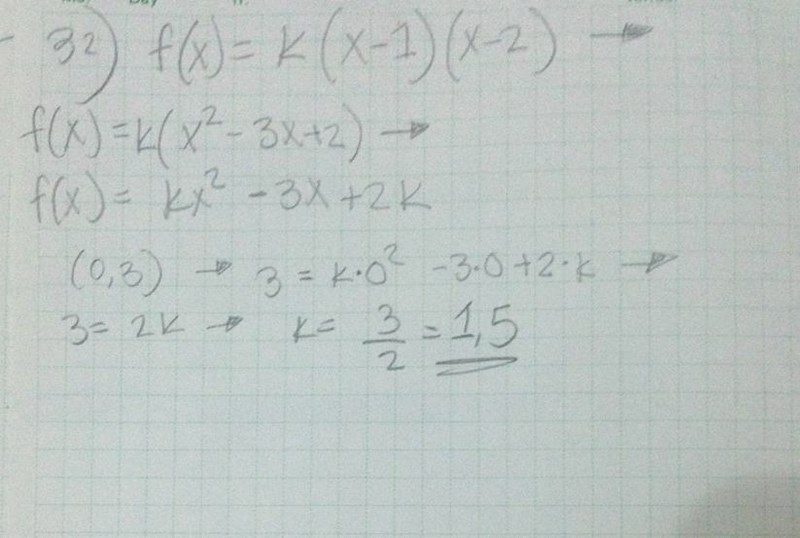 32) f(x) = k(x-1)(x-2) →
f(x) = k(x² - 3x+2) →
f(x) = kx² - 3x + 2k
(0,3) → 3 = k·0² - 3·0 + 2·k →
3 = 2k → k = 3/2 = 1,5